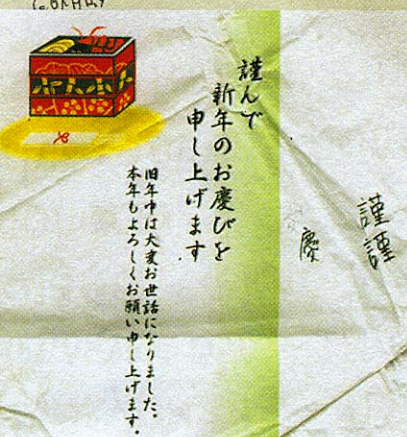 謹んで
新年のお慶びを
申し上げます
旧年中は大変お世話になりました。
本年もよろしくお願い申し上げます。
慶
謹
謹